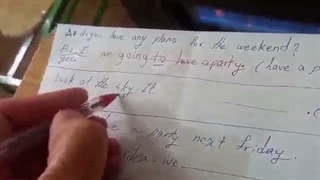 have any plans for the weekend?
I am going to have a party. (have a p
Look at the sky. It
party next friday.
idea. we